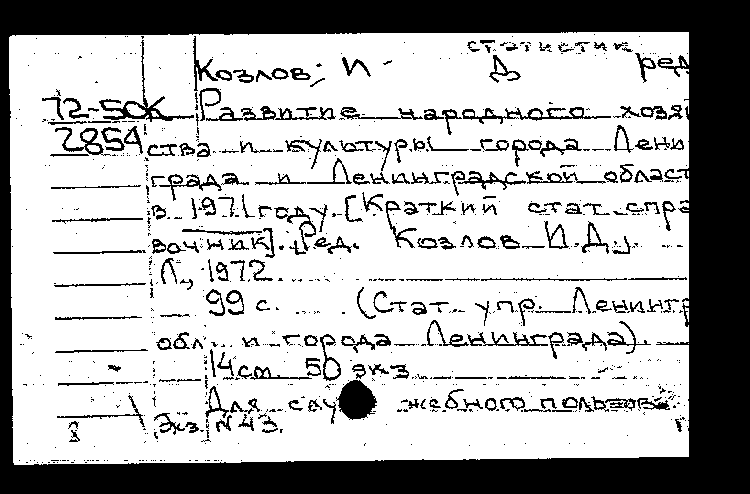 статистик
Козлов, И. Д. ред
72-50К Развитие народного хозяй
2854 ства и культуры города Лени
града и Ленинградской област
в 1971 году. [Краткий стат. спра
вочник]. Ред. Козлов И.Д.
Л., 1972.
99 с. (Стат. упр. Ленингр
обл. и города Ленинграда).
14 см. 50 экз
Для служебного пользов.
Экз. №43.